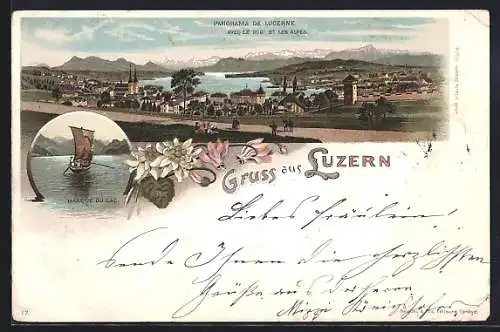 PANORAMA DE LUCERNE
AVEC LE RIGI ET LES ALPES.
BARQUE DU LAC.
Gruss aus LUZERN
Liebes Fräulein!
Sende Ihnen die herzlichsten
Grüße, aus der Ferne
Mizzi
17.